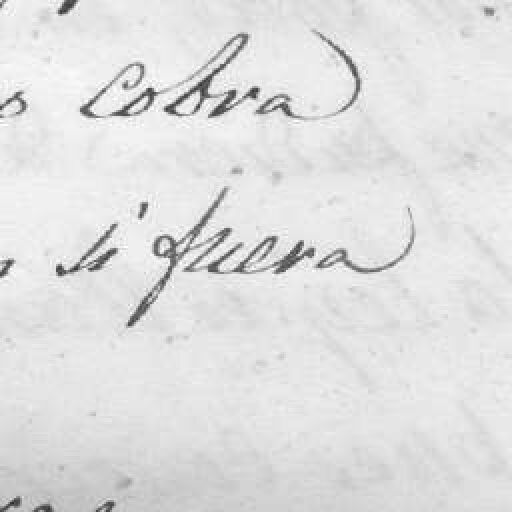 cobra
si fuera